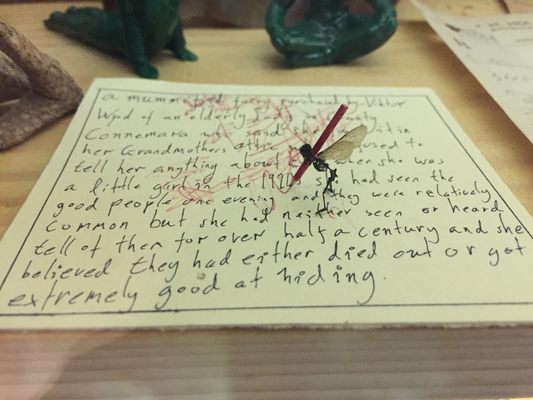 a mummified fairy purchased by Viktor
Wynd of an elderly lady in County
Connemara who said she found it in
her Grandmothers attic refused to
tell her anything about when she was
a little girl in the 1920s she had seen the
good people one evening and they were relatively
common but she had neither seen or heard
tell of them for over half a century and she
believed they had either died out or got
extremely good at hiding.